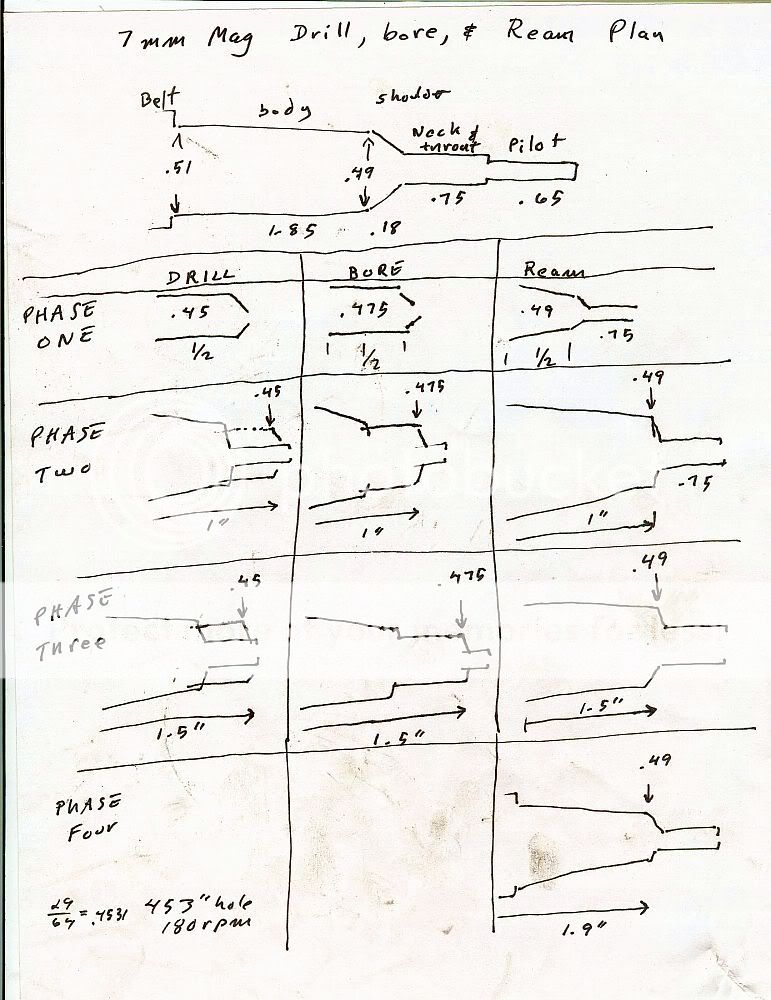 7mm Mag Drill, bore, & Ream Plan
Belt
body
sholder
Neck &
throat
Pilot
.51
.49
.75
.65
1.85
.18
DRILL
BORE
Ream
PHASE
ONE
.45
1/2
.475
1/2
.49
.75
1/2
PHASE
Two
.45
1"
.475
1"
.49
.75
1"
PHASE
Three
.45
1.5"
.475
1.5"
.49
1.5"
PHASE
Four
.49
1.9"
29/64 = .4531 453" hole
180 rpm